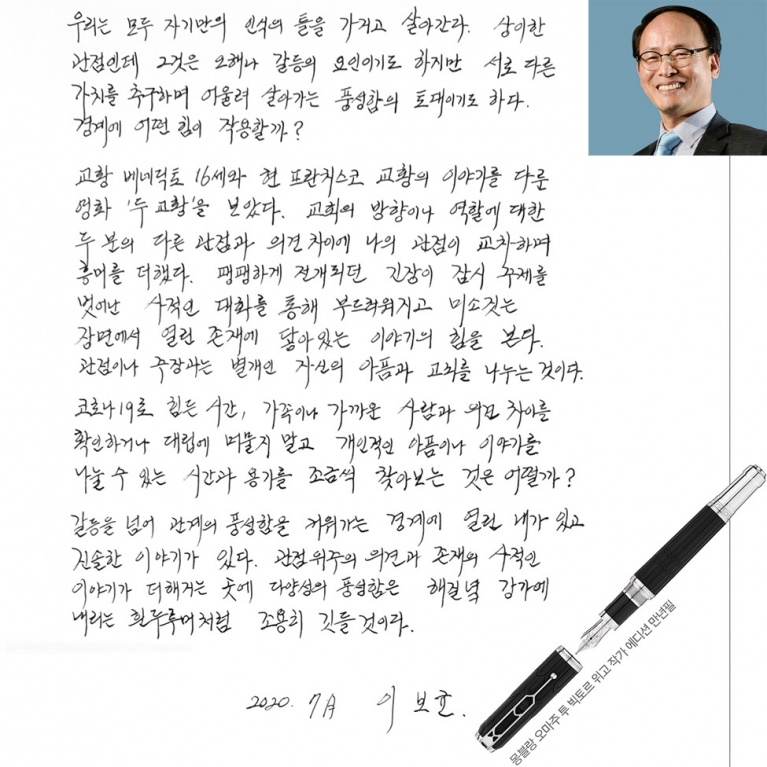 우리는 모두 자기만의 인식의 틀을 가지고 살아간다. 상이한
관점인데 그것은 오해나 갈등의 요인이기도 하지만 서로 다른
가치를 추구하며 어울려 살아가는 풍성함의 토대이기도 하다.
경계에 어떤 힘이 작용할까?
교황 베네딕토 16세와 현 프란치스코 교황의 이야기를 다룬
영화 '두 교황'을 보았다. 교회의 방향이나 역할에 대한
두 분의 다른 관점과 의견 차이에 나의 관점이 교차하며
흥미를 더했다. 팽팽하게 전개되던 긴장이 잠시 주제를
벗어난 사적인 대화를 통해 부드러워지고 미소짓는
장면에서 열린 존재에 닿아있는 이야기의 힘을 본다.
관점이나 주장과는 별개인 자신의 아픔과 고뇌를 나누는 것이다.
코로나19로 힘든 시간, 가족이나 가까운 사람과 의견 차이를
확인하거나 대립에 머물지 말고 개인적인 아픔이나 이야기를
나눌 수 있는 시간과 용기를 조금씩 찾아보는 것은 어떨까?
갈등을 넘어 관계의 풍성함을 키워가는 경계에 열린 내가 있고
진솔한 이야기가 있다. 관점위주의 의견과 존재의 사적인
이야기가 더해지는 곳에 다양성의 풍성함은 해질녘 강가에
내리는 흰두루미처럼 조용히 깃들 것이다.
2020. 7月 이 보균.
몽블랑 오마주 투 빅토르 위고 작가 에디션 만년필